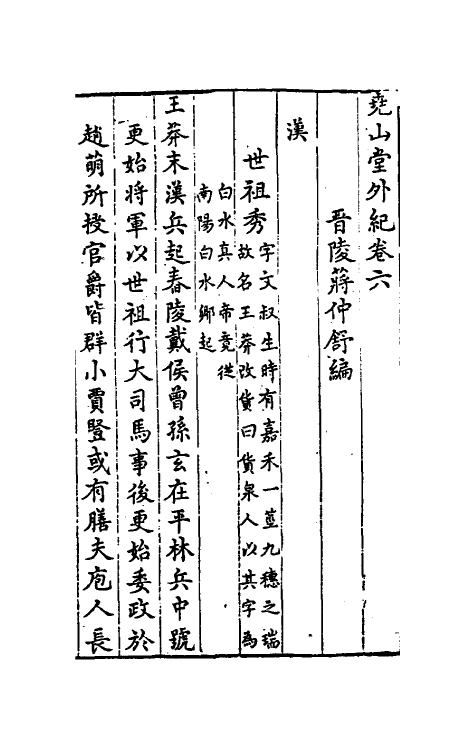 堯山堂外紀卷六
晋陵蔣仲舒編
漢
世祖秀
字文叔生時有嘉禾一莖九穗之瑞
故名王莽改貨曰貨泉人以其字為
白水真人帝竟從
南陽白水鄉起
王莽末漢兵起舂陵戴侯曾孫玄在平林兵中號
更始將軍以世祖行大司馬事後更始委政於
趙萌所授官爵皆群小賈豎或有膳夫庖人長